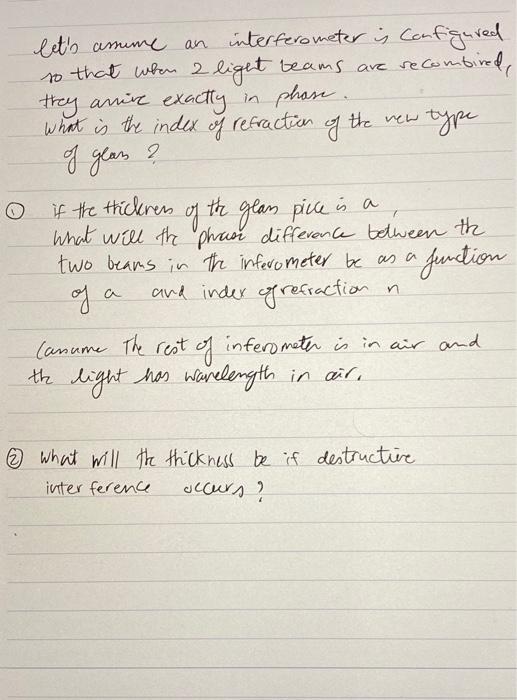 let's assume an interferometer is Configured
so that when 2 light beams are recombined,
they arrive exactly in phase.
What is the index of refraction of the new type
of glass ?
① if the thickness of the glass pice is a ,
What will the phase difference between the
two beams in the inferometer be as a function
of a and index of refraction n
(assume The rest of inferometer is in air and
the light has wavelength in air.
② What will the thickness be if destructive
interference occurs ?